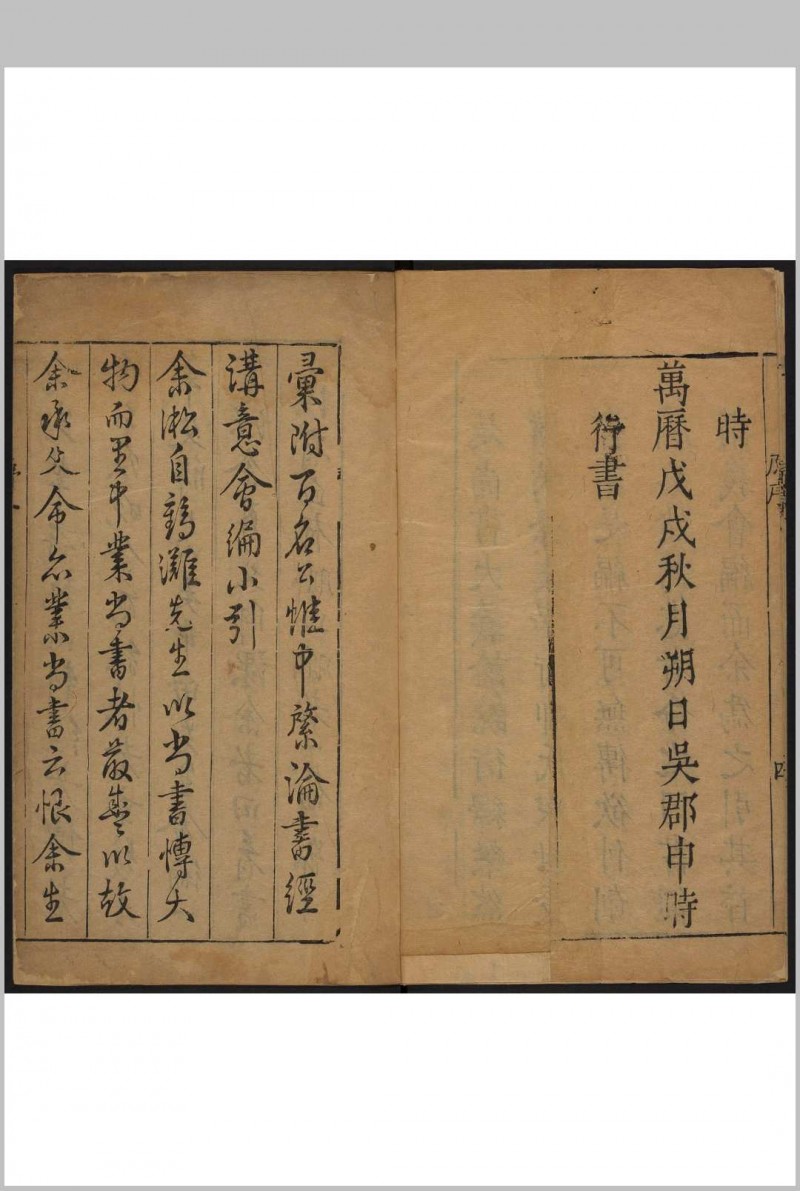 原序
四
時
萬曆戊戌秋月朔日吳郡申時
行書
彙附百名公帷中綮論書經
講意會編小引
余淞自鶴灘先生以尚書慱大
物而里中業尚書者最盛以故
余承先命亦業尚書云恨余生